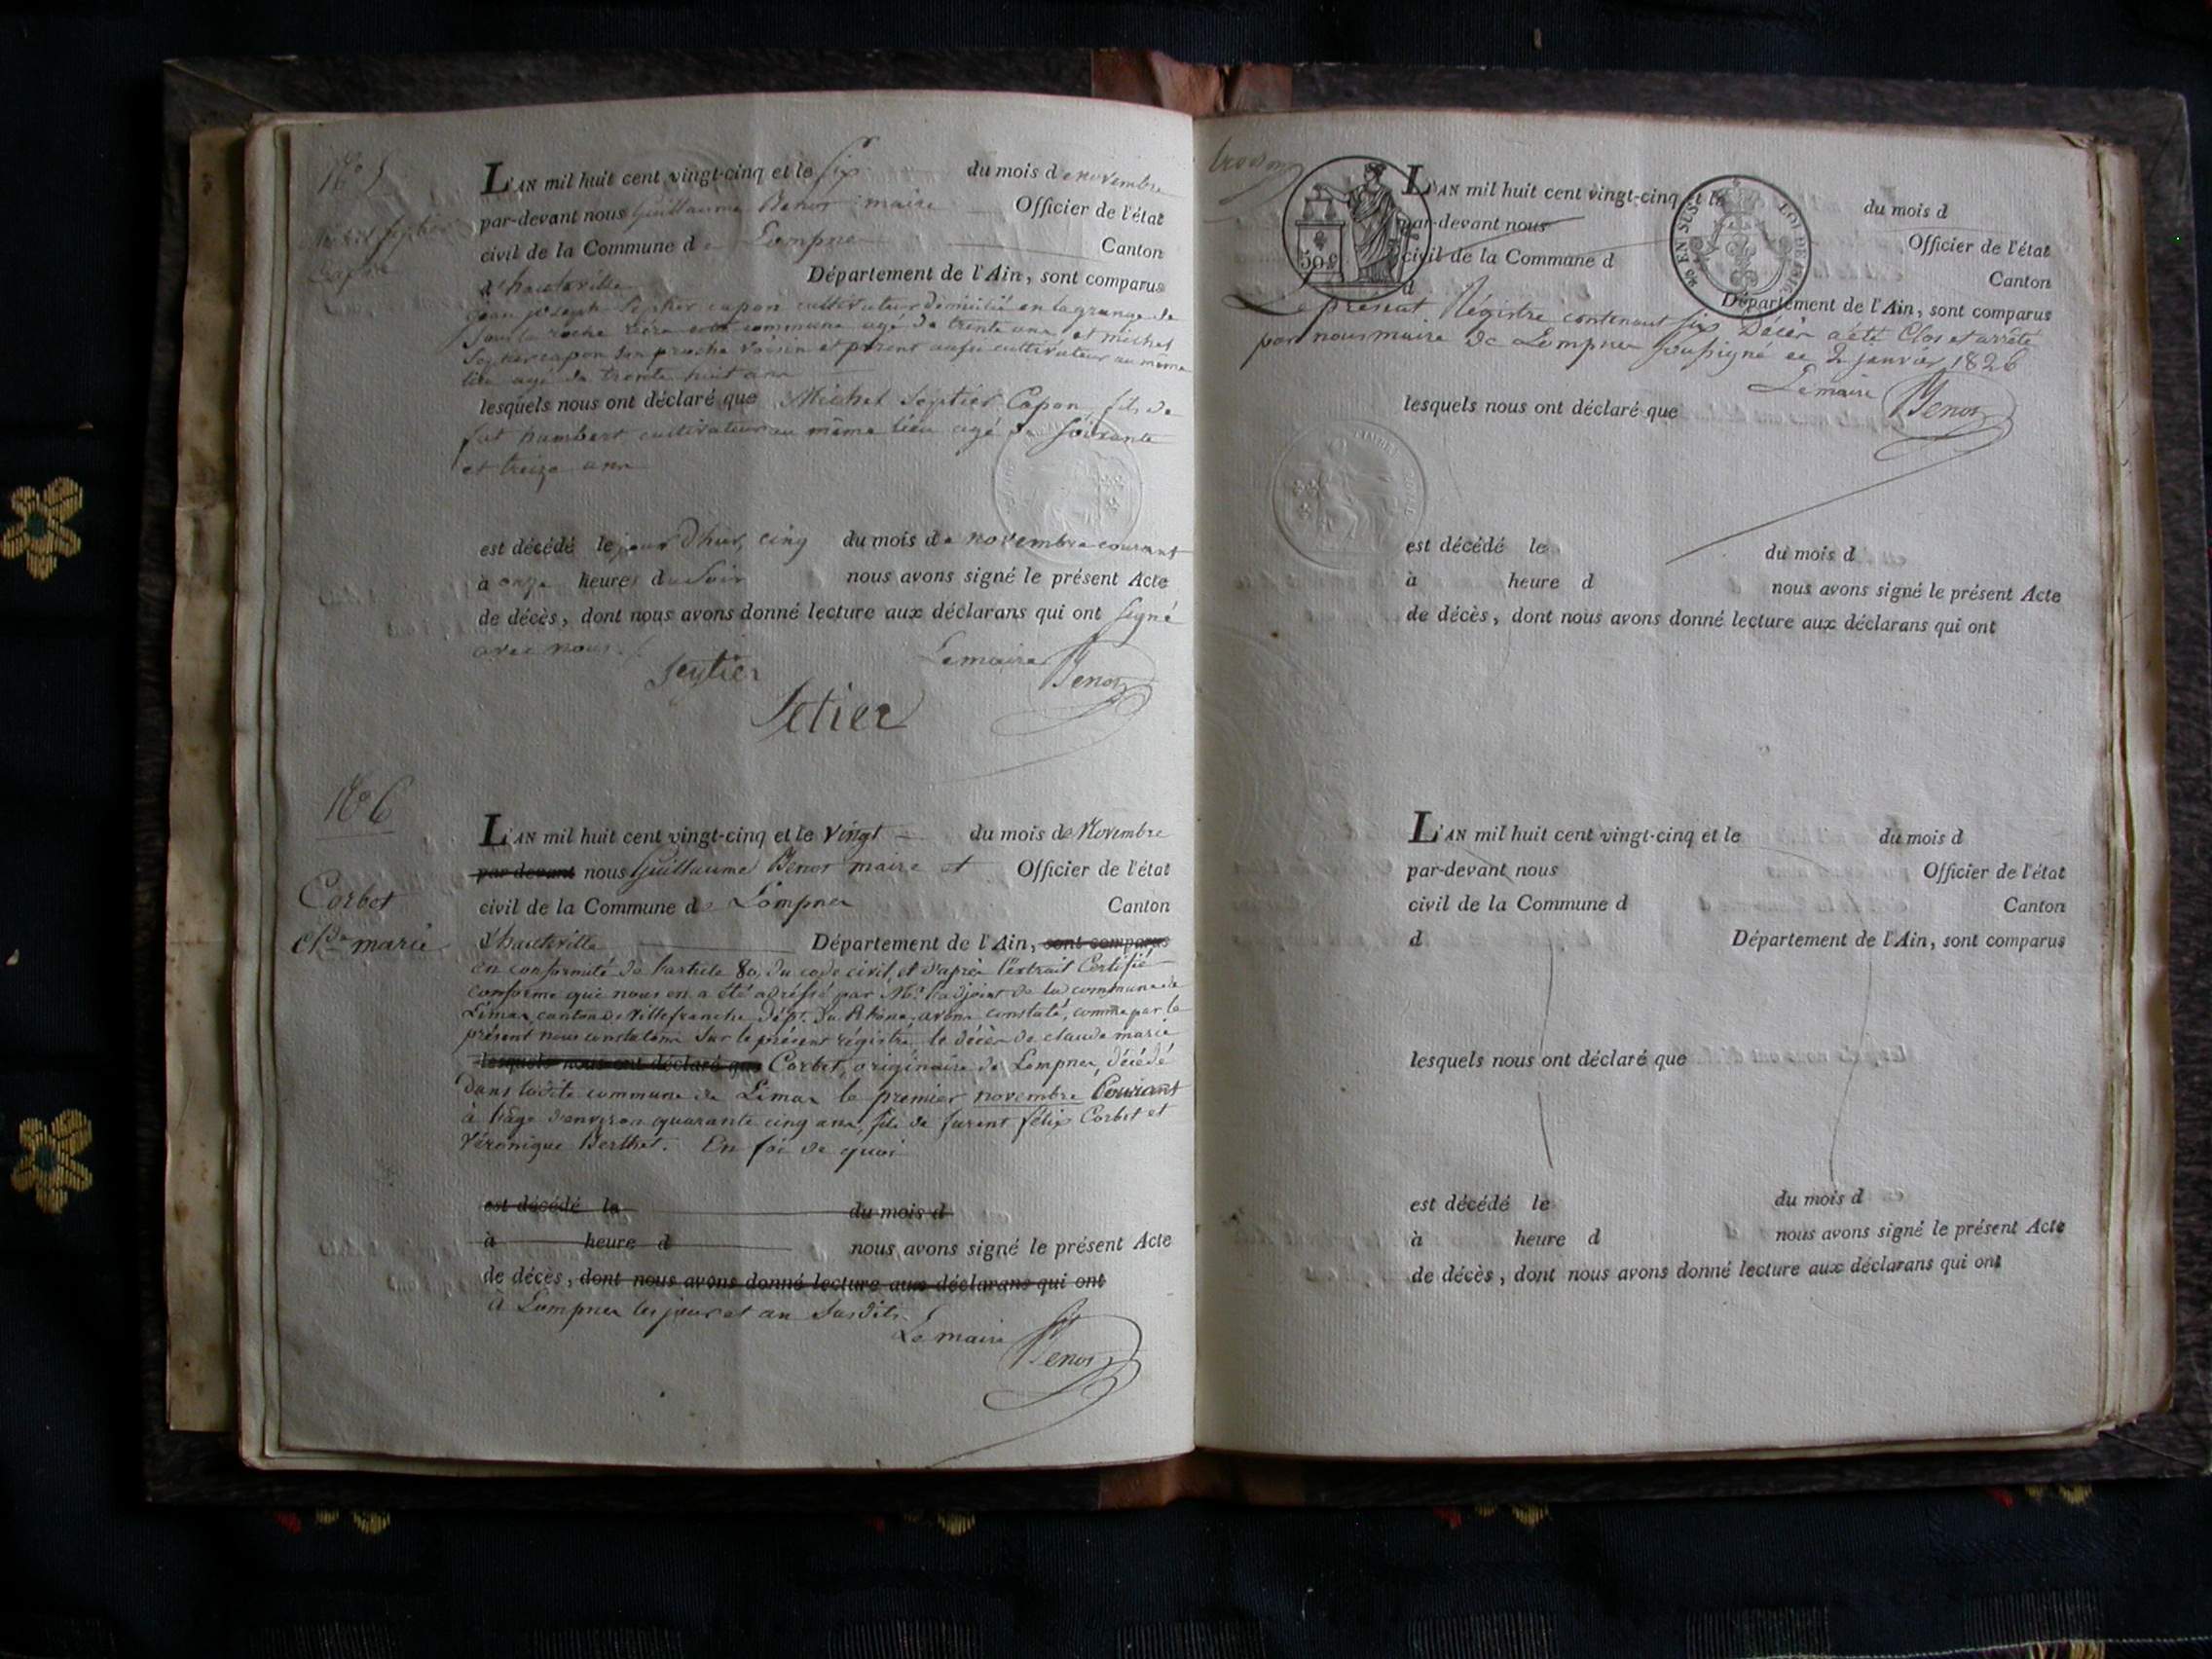 No 5
Michel Septier
Capon
L'AN mil huit cent vingt-cinq et le six du mois de novembre
par-devant nous Guillaume Benor maire Officier de l'état
civil de la Commune de Lompner Canton
d'hauteville Département de l'Ain, sont comparus
jean joseph Septier capon cultivateur domicilié en la grange de
Sous la roche commune agé de trente ans et michel
Septier capon son proche voisin et parent aussi cultivateur au même
lieu agé de trente huit ans
lesquels nous ont déclaré que Michel Septier Capon, fils de
fut humbert cultivateur au même lieu agé de soixante
et treize ans
est décédé le jour d'hier, cinq du mois de novembre courant
à onze heures du soir nous avons signé le présent Acte
de décès, dont nous avons donné lecture aux déclarans qui ont signé
avec nous.
Septier Lemaire Benor
Setier
No 6
Corbet
Cl.de marie
L'AN mil huit cent vingt-cinq et le vingt du mois de Novembre
par devant nous Guillaume Benor maire et Officier de l'état
civil de la Commune de Lompner Canton
d'hauteville Département de l'Ain, sont comparus
en conformité de l'article 80, du code civil, et d'après l'extrait Certifié
conforme qui nous en a été adressé par Mr. l'adjoint de la commune de
Limas canton de Villefranche, dépt. du Rhône, avons constaté, comme par le
présent nous constatons sur le présent régistre, le décès de claude marie
lesquels nous ont déclaré que Corbet, originaire de Lompner, décédé
dans ladite commune de Limas le premier novembre Courant
à l'âge d'environ quarante cinq ans, fils de furent félix Corbet et
Véronique Berthet. En foi de quoi
est décédé le du mois d
à heure d nous avons signé le présent Acte
de décès, dont nous avons donné lecture aux déclarans qui ont
à Lompner les jour et an susdits.
Le maire Benor
troisième
50 c
EN SUS
LOI DE 1816
L'AN mil huit cent vingt-cinq et le du mois d
par-devant nous Officier de l'état
civil de la Commune d Canton
d Département de l'Ain, sont comparus
Le présent Régistre contenant six Décès a été Clos et arrêté
par nous maire de Lompner soussigné ce 2 janvier 1826
Lemaire Benor
lesquels nous ont déclaré que
est décédé le du mois d
à heure d nous avons signé le présent Acte
de décès, dont nous avons donné lecture aux déclarans qui ont
L'AN mil huit cent vingt-cinq et le du mois d
par-devant nous Officier de l'état
civil de la Commune d Canton
d Département de l'Ain, sont comparus
lesquels nous ont déclaré que
est décédé le du mois d
à heure d nous avons signé le présent Acte
de décès, dont nous avons donné lecture aux déclarans qui ont